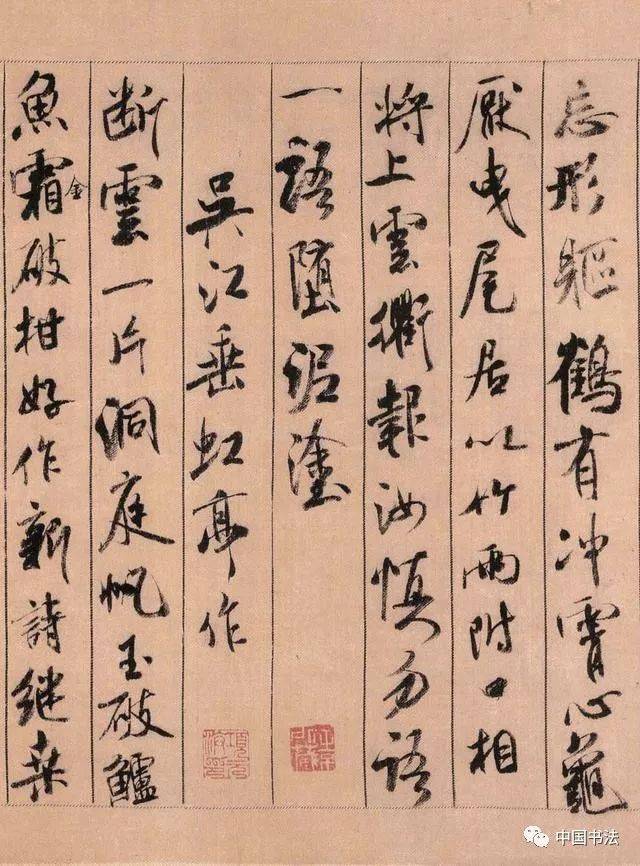 忘形軀鶴有冲霄心龜
厭曳尾居以竹兩附口相
將上雲衢報汝慎勿語
一語堕泥塗
吳江垂虹亭作
断雲一片洞庭帆玉破鱸
魚霜金破柑好作新詩継桒
中国书法